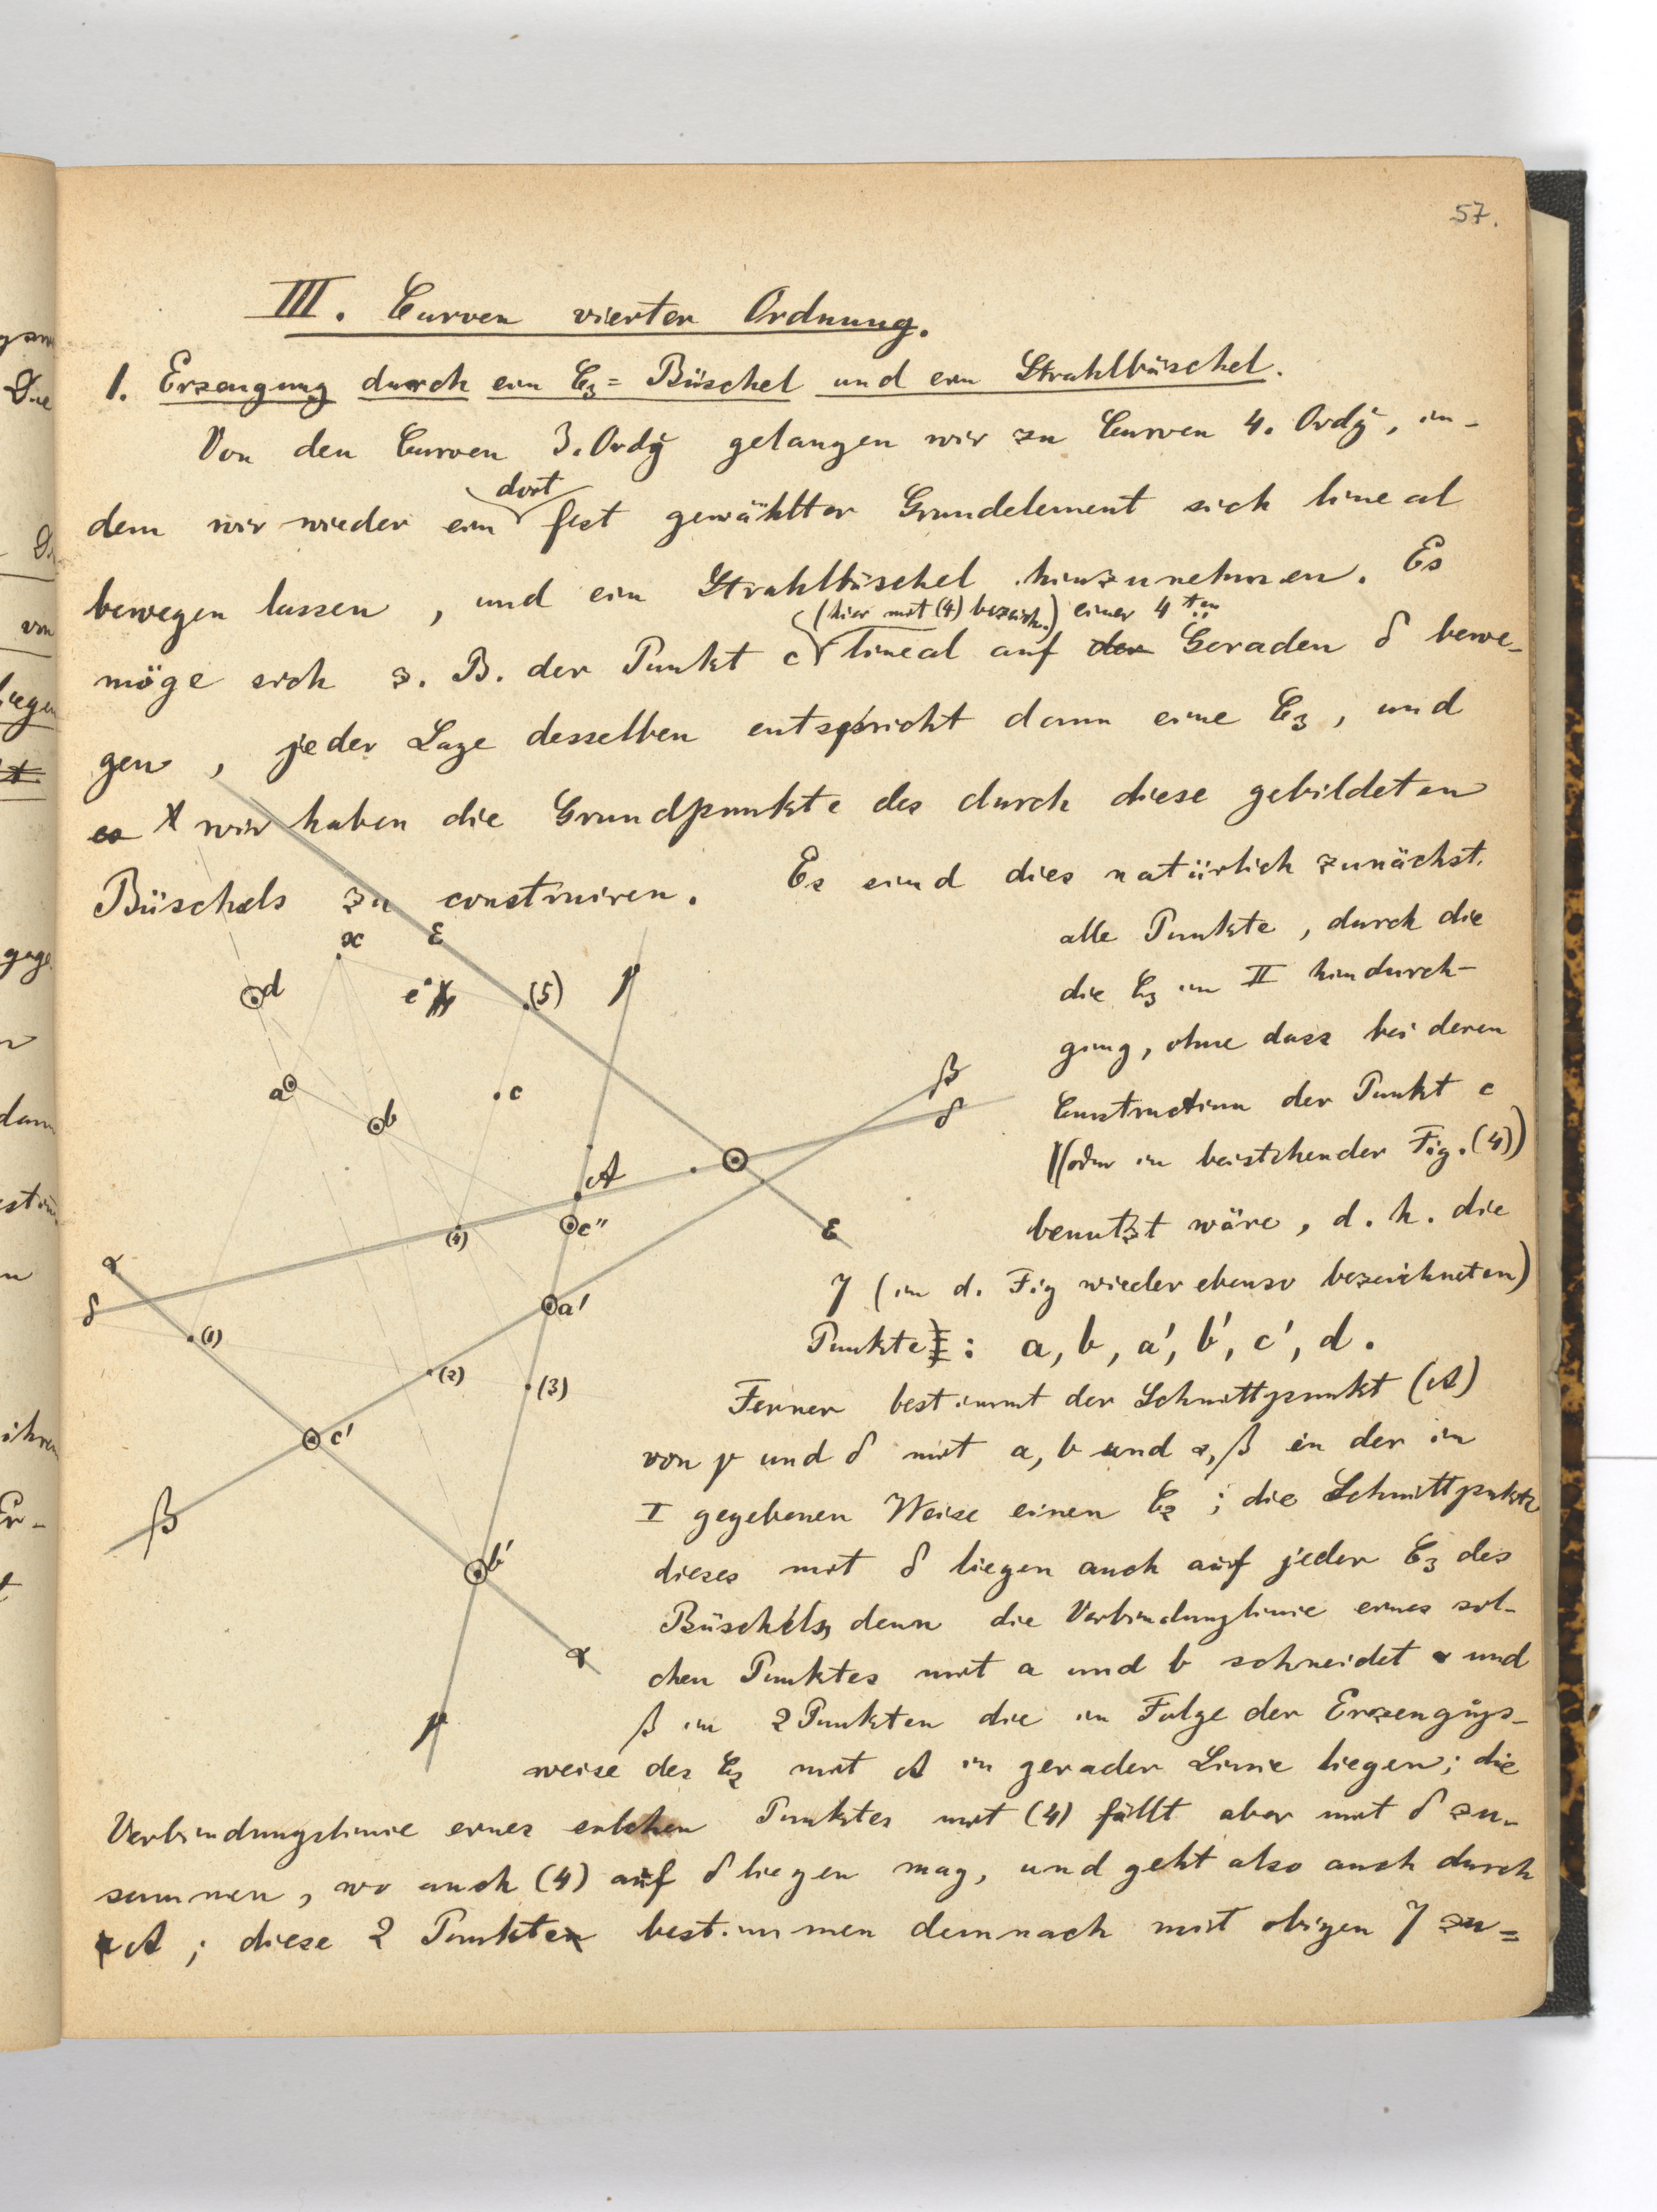 57.
III. Curven vierter Ordnung.
1. Erzeugung durch ein C3= Büschel und ein Strahlbüschel.
Von den Curven 3. Ordg gelangen wir zu Curven 4. Ordg, in-
dort
dem wir wieder ein fest gewählter Grundelement sich lineal
bewegen lassen, und ein Strahlbüschel hinzunehmen. Es
(hier mit (4) bezeich.) einer 4ten
möge sich z. B. der Punkt c lineal auf der Geraden δ bewe-
gen, jeder Lage desselben entspricht dann eine C3, und
es wir haben die Grundpunkte des durch diese gebildeten
Büschels zu construiren. Es sind dies natürlich zunächst
alle Punkte, durch die
die C3 in II hindurch-
ging, ohne dass bei deren
Construction der Punkt c
(oder in beistehender Fig. (4))
benutzt wäre, d. h. die
7 (in d. Fig wieder ebenso bezeichneten)
Punkte: a, b, a', b', c', d.
Ferner bestimmt der Schnittpunkt (A)
von γ und δ mit a, b und α, β in der in
I gegebenen Weise einen C2; die Schnittpunkte
dieses mit δ liegen auch auf jeder C3 des
Büschels, denn die Verbindunglinie eines sol-
chen Punktes mit a und b schneidet α und
β in 2 Punkten die in Folge der Erzeugugs-
weise des C2 mit A in gerader Linie liegen; die
Verbindungslinie eines solchen Punktes mit (4) fällt aber mit δ zu-
sammen, wo auch (4) auf δ liegen mag, und geht also auch durch
A; diese 2 Punkte bestimmen demnach mit obigen 7 zu=
x
ε
d
e
(5)
γ
a
b
c
β
δ
A
c''
(4)
ε
α
δ
(1)
a'
(2)
(3)
c'
β
b'
α
γ